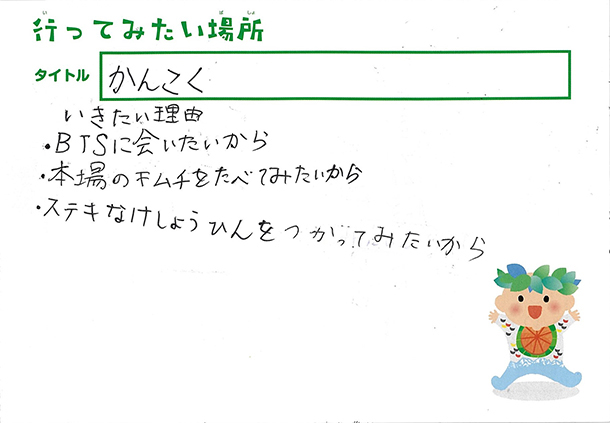 行ってみたい場所
タイトル かんこく
いきたい理由
・BTSに会いたいから
・本場のキムチをたべてみたいから
・ステキなけしょうひんをつかってみたいから